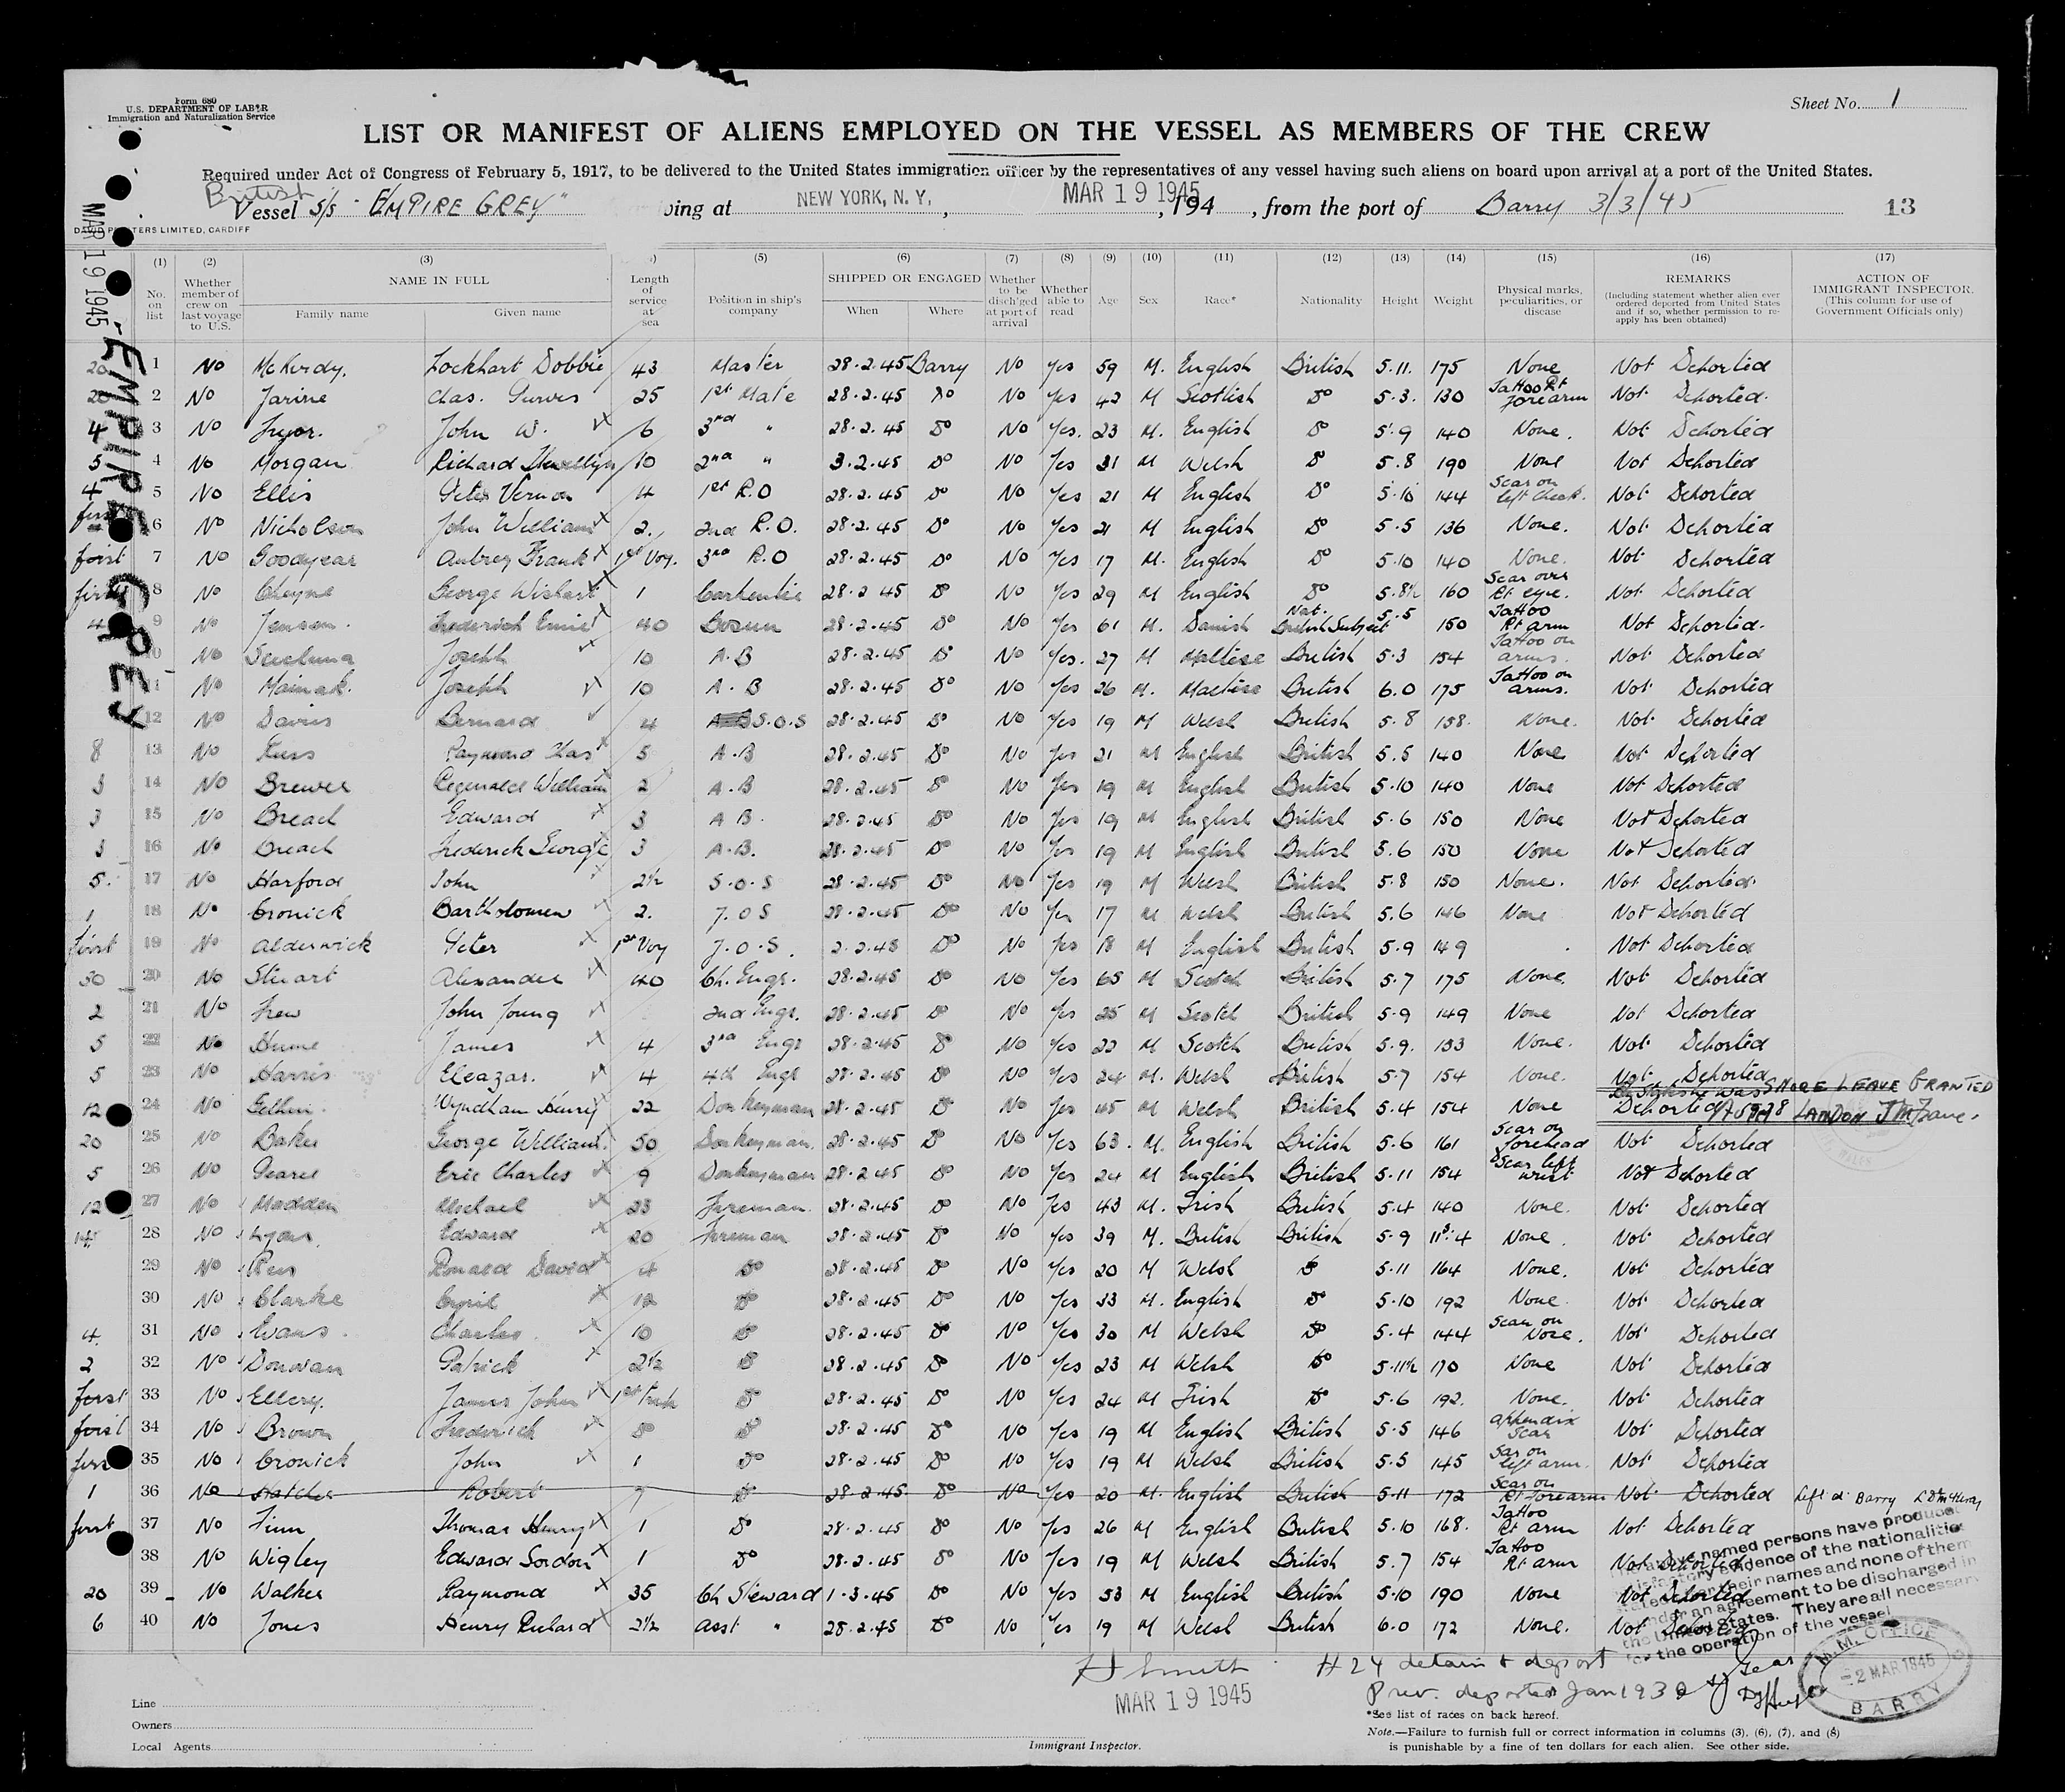 Form 680
U.S. DEPARTMENT OF LABOR
Immigration and Naturalization Service
Sheet No. 1
LIST OR MANIFEST OF ALIENS EMPLOYED ON THE VESSEL AS MEMBERS OF THE CREW
Required under Act of Congress of February 5, 1917, to be delivered to the United States immigration officer by the representatives of any vessel having such aliens on board upon arrival at a port of the United States.
British
Vessel S/S "EMPIRE GREY" ving at NEW YORK, N. Y., MAR 19 1945, 194 , from the port of Barry 3/3/45 13
DAVID PRINTERS LIMITED, CARDIFF
MAR 19 1945
EMPIRE GREY
(1) No. on list (2) Whether member of crew on last voyage to U.S. (3) NAME IN FULL Family name Given name Length of service at sea (5) Position in ship's company (6) SHIPPED OR ENGAGED When Where (7) Whether to be disch'ged at port of arrival (8) Whether able to read (9) Age (10) Sex (11) Race* (12) Nationality (13) Height (14) Weight (15) Physical marks, peculiarities, or disease (16) REMARKS (Including statement whether alien ever ordered deported from United States and if so, whether permission to re-apply has been obtained) (17) ACTION OF IMMIGRANT INSPECTOR (This column for use of Government Officials only)
20 1 No McKurdy. Lockhart Dobbie 43 Master 28.2.45 Barry No Yes 59 M. English British 5.11. 175 None Not Deported
20 2 No Jarine Chas. Purves 25 1st Mate 28.2.45 Do No Yes 42 M Scottish Do 5.3. 130 Tattoo Rt forearm Not Deported.
4 3 No Fryer. John W. 6 3rd " 28.2.45 Do No Yes. 23 M. English Do 5.9 140 None. Not Deported
5 4 No Morgan Richard Llewellyn 10 2nd " 3.2.45 Do No Yes 31 M Welsh Do 5.8 190 None Not Deported
4 5 No Ellis Peter Vernon 4 1st R.O 28.2.45 Do No Yes 21 M English Do 5.10 144 Scar on left cheek. Not Deported
first 6 No Nicholson John William 2. 2nd R.O. 28.2.45 Do No Yes 21 M English Do 5.5 136 None. Not Deported
first 7 No Goodyear Aubrey Frank 1st Voy. 3rd R.O 28.2.45 Do No Yes 17 M. English Do 5.10 140 None. Not Deported
first 8 No Cheyne George Wishart 1 Carpenter 28.2.45 Do No Yes 29 M English Do 5.8½ 160 Scar over Rt eye. Not Deported
4 9 No Jensen. Frederick Emiel 40 Bosun 28.2.45 Do No Yes 61 M. Danish Nat. British Subject 5.5 150 Tattoo Rt arm Not Deported.
10 No Joseph 10 A.B 28.2.45 Do No Yes. 27 M Maltese British 5.3 154 Tattoo on arms. Not Deported
11 No Joseph 10 A.B 28.2.45 Do No Yes 26 M. Maltese British 6.0 175 Tattoo on arms. Not Deported
12 No Davies Bernard 4 S.O.S 28.2.45 Do No Yes 19 M Welsh British 5.8 158. None. Not Deported
8 13 No Raymond Chas 5 A.B 28.2.45 Do No Yes 21 M English British 5.5 140 None Not Deported
3 14 No Brewer Reginald William 2 A.B 28.2.45 Do No Yes 19 M English British 5.10 140 None Not Deported
3 15 No Breach Edward 3 A B. 28.2.45 Do No Yes 19 M English British 5.6 150 None Not Deported
3 16 No Breach Frederick George 3 A.B. 28.2.45 Do No Yes 19 M English British 5.6 150 None Not Deported
5. 17 No Harford John 2½ S.O.S 28.2.45 Do No Yes 19 M Welsh British 5.8 150 None. Not Deported.
1 18 No Cronick Bartholomew 2. J.O S 28.2.45 Do No Yes 17 M Welsh British 5.6 146 None Not Deported
first 19 No Alderwick Peter 1st Voy J.O.S. 2.2.45 Do No Yes 18 M English British 5.9 149 Not Deported
30 20 No Stuart Alexander 40 Ch. Engr. 28.2.45 Do No Yes 65 M Scotch British 5.7 175 None. Not Deported
2 21 No Frew John Young 2nd Engr. 28.2.45 Do No Yes 25 M Scotch British 5.9 149 None Not Deported
5 22 No Hume James 4 3rd Engr 28.2.45 Do No Yes 22 M Scotch British 5.9. 133 None. Not Deported
5 23 No Harris Eleazar. 4 4th Engr 28.2.45 Do No Yes 24 M. Welsh British 5.7 154 None. Not Deported
12 24 No Gethin. Wyndham Henry 22 Donkeyman 28.2.45 Do No Yes 45 M Welsh British 5.4 154 None Deported SHORE LEAVE GRANTED LANDON
20 25 No Baker George William. 50 Donkeyman. 28.2.45 Do No Yes 63. M. English British 5.6 161 Scar on forehead Not Deported
5 26 No Pearce Eric Charles 9 Donkeyman 28.2.45 Do No Yes 24 M English British 5.11 154 Scar left wrist Not Deported
12 27 No Madden Michael 23 Fireman. 28.2.45 Do No Yes 43 M. Irish British 5.4 140 None. Not Deported
14 28 No Lyons. Edward 20 Fireman 28.2.45 Do No Yes 39 M. British British 5.9 11st.4 None. Not Deported
29 No Rees Ronald David 4 Do 28.2.45 Do No Yes 20 M Welsh Do 5.11 164 None. Not Deported
30 No Clarke Cyril 12 Do 28.2.45 Do No Yes 33 M. English Do 5.10 192 None. Not Deported
4. 31 No Evans. Charles. 10 Do 28.2.45 Do No Yes 30 M Welsh Do 5.4 144 Scar on Nose. Not Deported
2 32 No Donovan Patrick 2½ Do 28.2.45 Do No Yes 23 M Welsh Do 5.11½ 170 None Not Deported
first 33 No Ellery. James John 1st Trip Do 28.2.45 Do No Yes 24 M Irish Do 5.6 192. None. Not Deported
first 34 No Brown Frederick Do 28.2.45 Do No Yes 19 M English British 5.5 146 appendix scar Not Deported
first 35 No Cronick John 1 Do 28.2.45 Do No Yes 19 M Welsh British 5.5 145 Scar on left arm. Not Deported
1 36 No Hatcher Robert Do 28.2.45 Do No Yes 20 M. English British 5.11 172 Scar on Rt Forearm Not Deported Left at Barry
first 37 No Finn Thomas Henry 1 Do 28.2.45 Do No Yes 26 M English British 5.10 168. Tattoo Rt arm Not Deported
38 No Wigley Edward Gordon 1 Do 28.2.45 Do No Yes 19 M Welsh British 5.7 154 Tattoo Rt arm Not Deported
20 39 No Walker Raymond 35 Ch Steward 1.3.45 Do No Yes 53 M English British 5.10 190 None Not Deported
6 40 No Jones Henry Richard 2½ Asst " 28.2.45 Do No Yes 19 M Welsh British 6.0 172 None. Not Deported
named persons have produced
satisfactory evidence of the nationalities
their names and none of them
under an agreement to be discharged in
the United States. They are all necessary
for the operation of the vessel
M.M. OFFICE
2 MAR 1945
BARRY
Smith # 24 detain & deport
MAR 19 1945 Prev. deported Jan 1930
Line
Owners
Local Agents
Immigrant Inspector.
*See list of races on back hereof.
Note.—Failure to furnish full or correct information in columns (3), (6), (7), and (8)
is punishable by a fine of ten dollars for each alien. See other side.